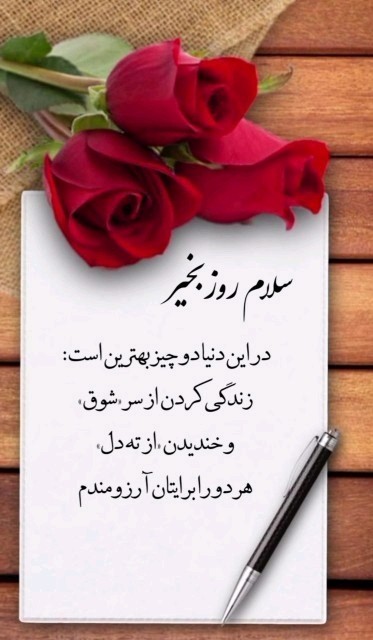 سلام روز بخیر
در این دنیا دو چیز بهترین است:
زندگی کردن از سر «شوق»
و خندیدن «از ته دل»
هر دو را برایتان آرزومندم